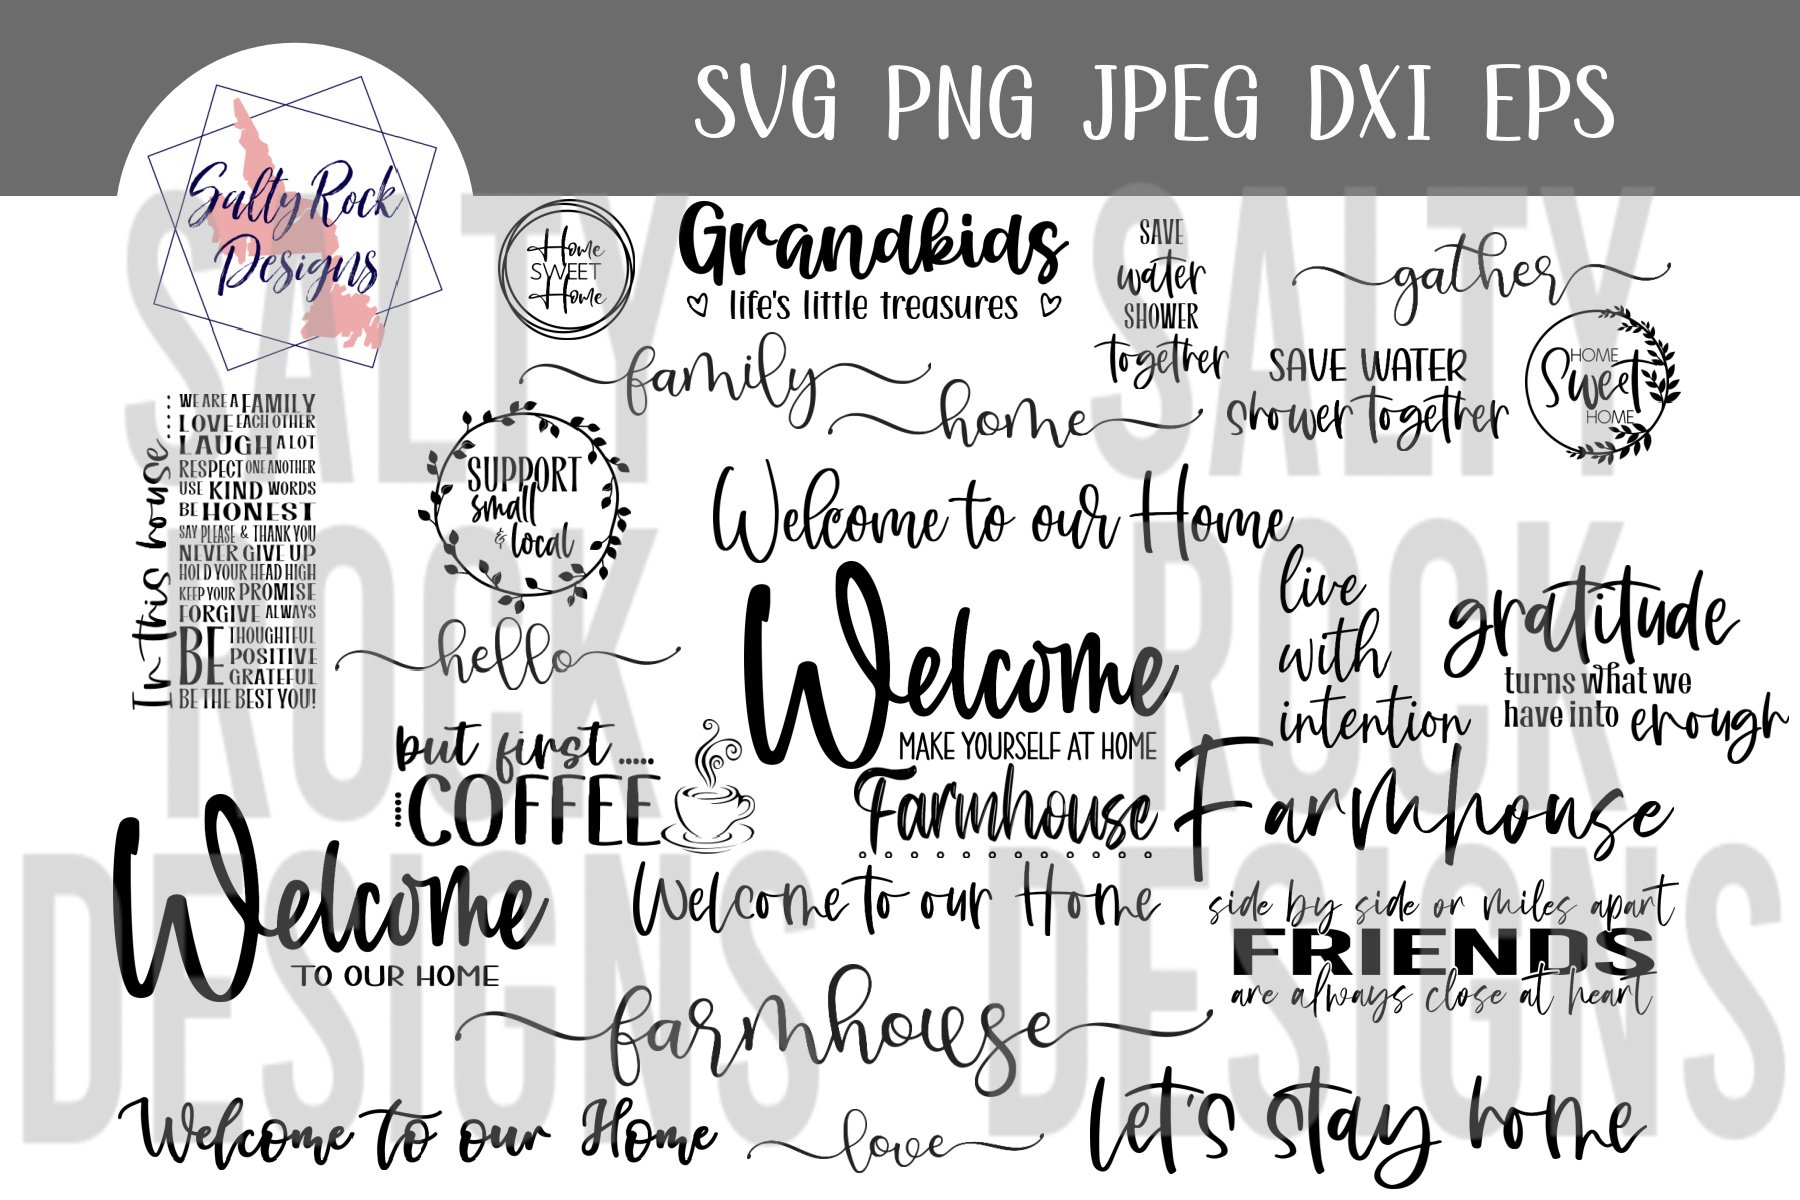 SVG PNG JPEG DXI EPS
Salty Rock
Designs
Home
SWEET
Home
Grandkids
life's little treasures
SAVE
water
SHOWER
together
gather
family
home
SAVE WATER
shower together
HOME
Sweet
HOME
In this house
WE ARE A FAMILY
LOVE EACH OTHER
LAUGH A LOT
RESPECT ONE ANOTHER
USE KIND WORDS
BE HONEST
SAY PLEASE & THANK YOU
NEVER GIVE UP
HOLD YOUR HEAD HIGH
KEEP YOUR PROMISE
FORGIVE ALWAYS
BE THOUGHTFUL
POSITIVE
GRATEFUL
BE THE BEST YOU!
SUPPORT
small
& local
Welcome to our Home
hello
Welcome
MAKE YOURSELF AT HOME
live
with
intention
gratitude
turns what we
have into enough
but first .....
COFFEE
Farmhouse
Farmhouse
Welcome
TO OUR HOME
Welcome to our Home
side by side or miles apart
FRIENDS
are always close at heart
farmhouse
Welcome to our Home
love
Let's stay home
SALTY
ROCK
DESIGNS
SALTY
ROCK
DESIGNS